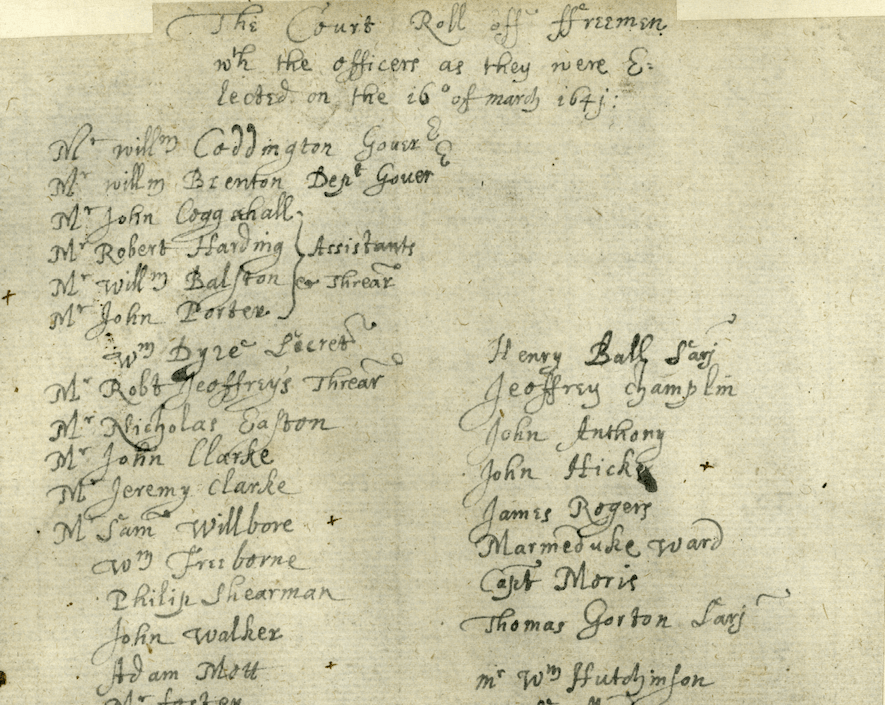 The Court Roll off ffreemen
wth the officers as they were E=
lected on the 16º of march 1641:
Mr willm Coddington Gouer
Mr willm Brenton Dept Gouer
Mr John Coggshall
Mr Robert Harding Assistants
Mr Willm Balston & Threar
Mr John Porter
Wm Dyre Secret
Mr Robt Jeoffreys Threar
Mr Nicholas Easton
Mr John Clarke
Mr Jeremy Clarke
Mr Sam Willbore
Wm Freeborne
Philip Shearman
John Walker
Adam Mott
Mr foster
Henry Ball Sarj
Jeoffrey Champlin
John Anthony
John Hicks
James Rogers
Marmeduke Ward
Capt Moris
Thomas Gorton Sarj
mr Wm Hutchinson